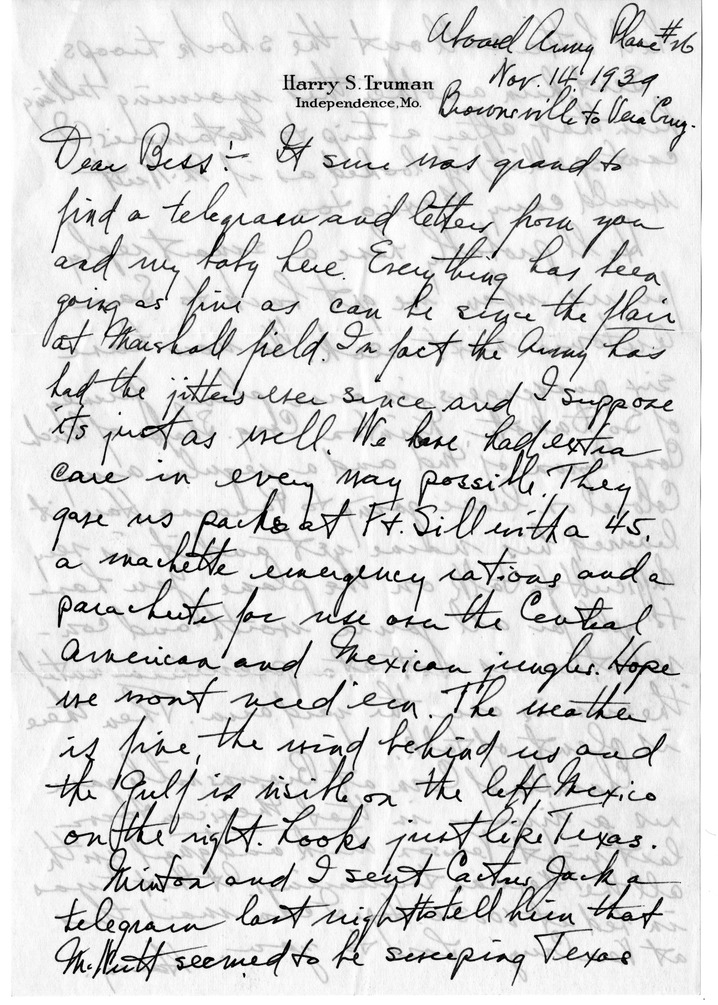 Aboard Army Plane #26
Nov. 14, 1939
Brownsville to Vera Cruz.
Harry S. Truman
Independence, Mo.
Dear Bess:- It sure was grand to
find a telegram and letters from you
and my baby here. Everything has been
going as fine as can be since the flair
at Marshall field. In fact the Army has
had the jitters ever since and I suppose
its just as well. We have had extra
care in every way possible. They
gave us packs at Ft. Sill with a 45,
a machette emergency rations and a
parachute for use over the Central
American and Mexican jungles. Hope
we wont need 'em. The weather
is fine, the wind behind us and
the Gulf is visible on the left Mexico
on the right. Looks just like Texas.
Minton and I sent Cactus Jack a
telegram last night to tell him that
McNutt seemed to be sweeping Texas